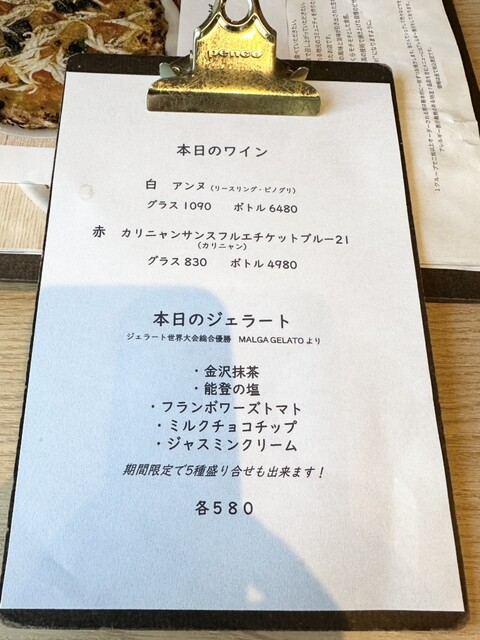 penco
本日のワイン
白　アンヌ(リースリング・ピノグリ)
グラス1090　ボトル6480
赤　カリニャンサンスフルエチケットブルー21
(カリニャン)
グラス830　ボトル4980
本日のジェラート
ジェラート世界大会総合優勝　MALGA GELATOより
・金沢抹茶
・能登の塩
・フランボワーズトマト
・ミルクチョコチップ
・ジャスミンクリーム
期間限定で5種盛り合せも出来ます！
各580